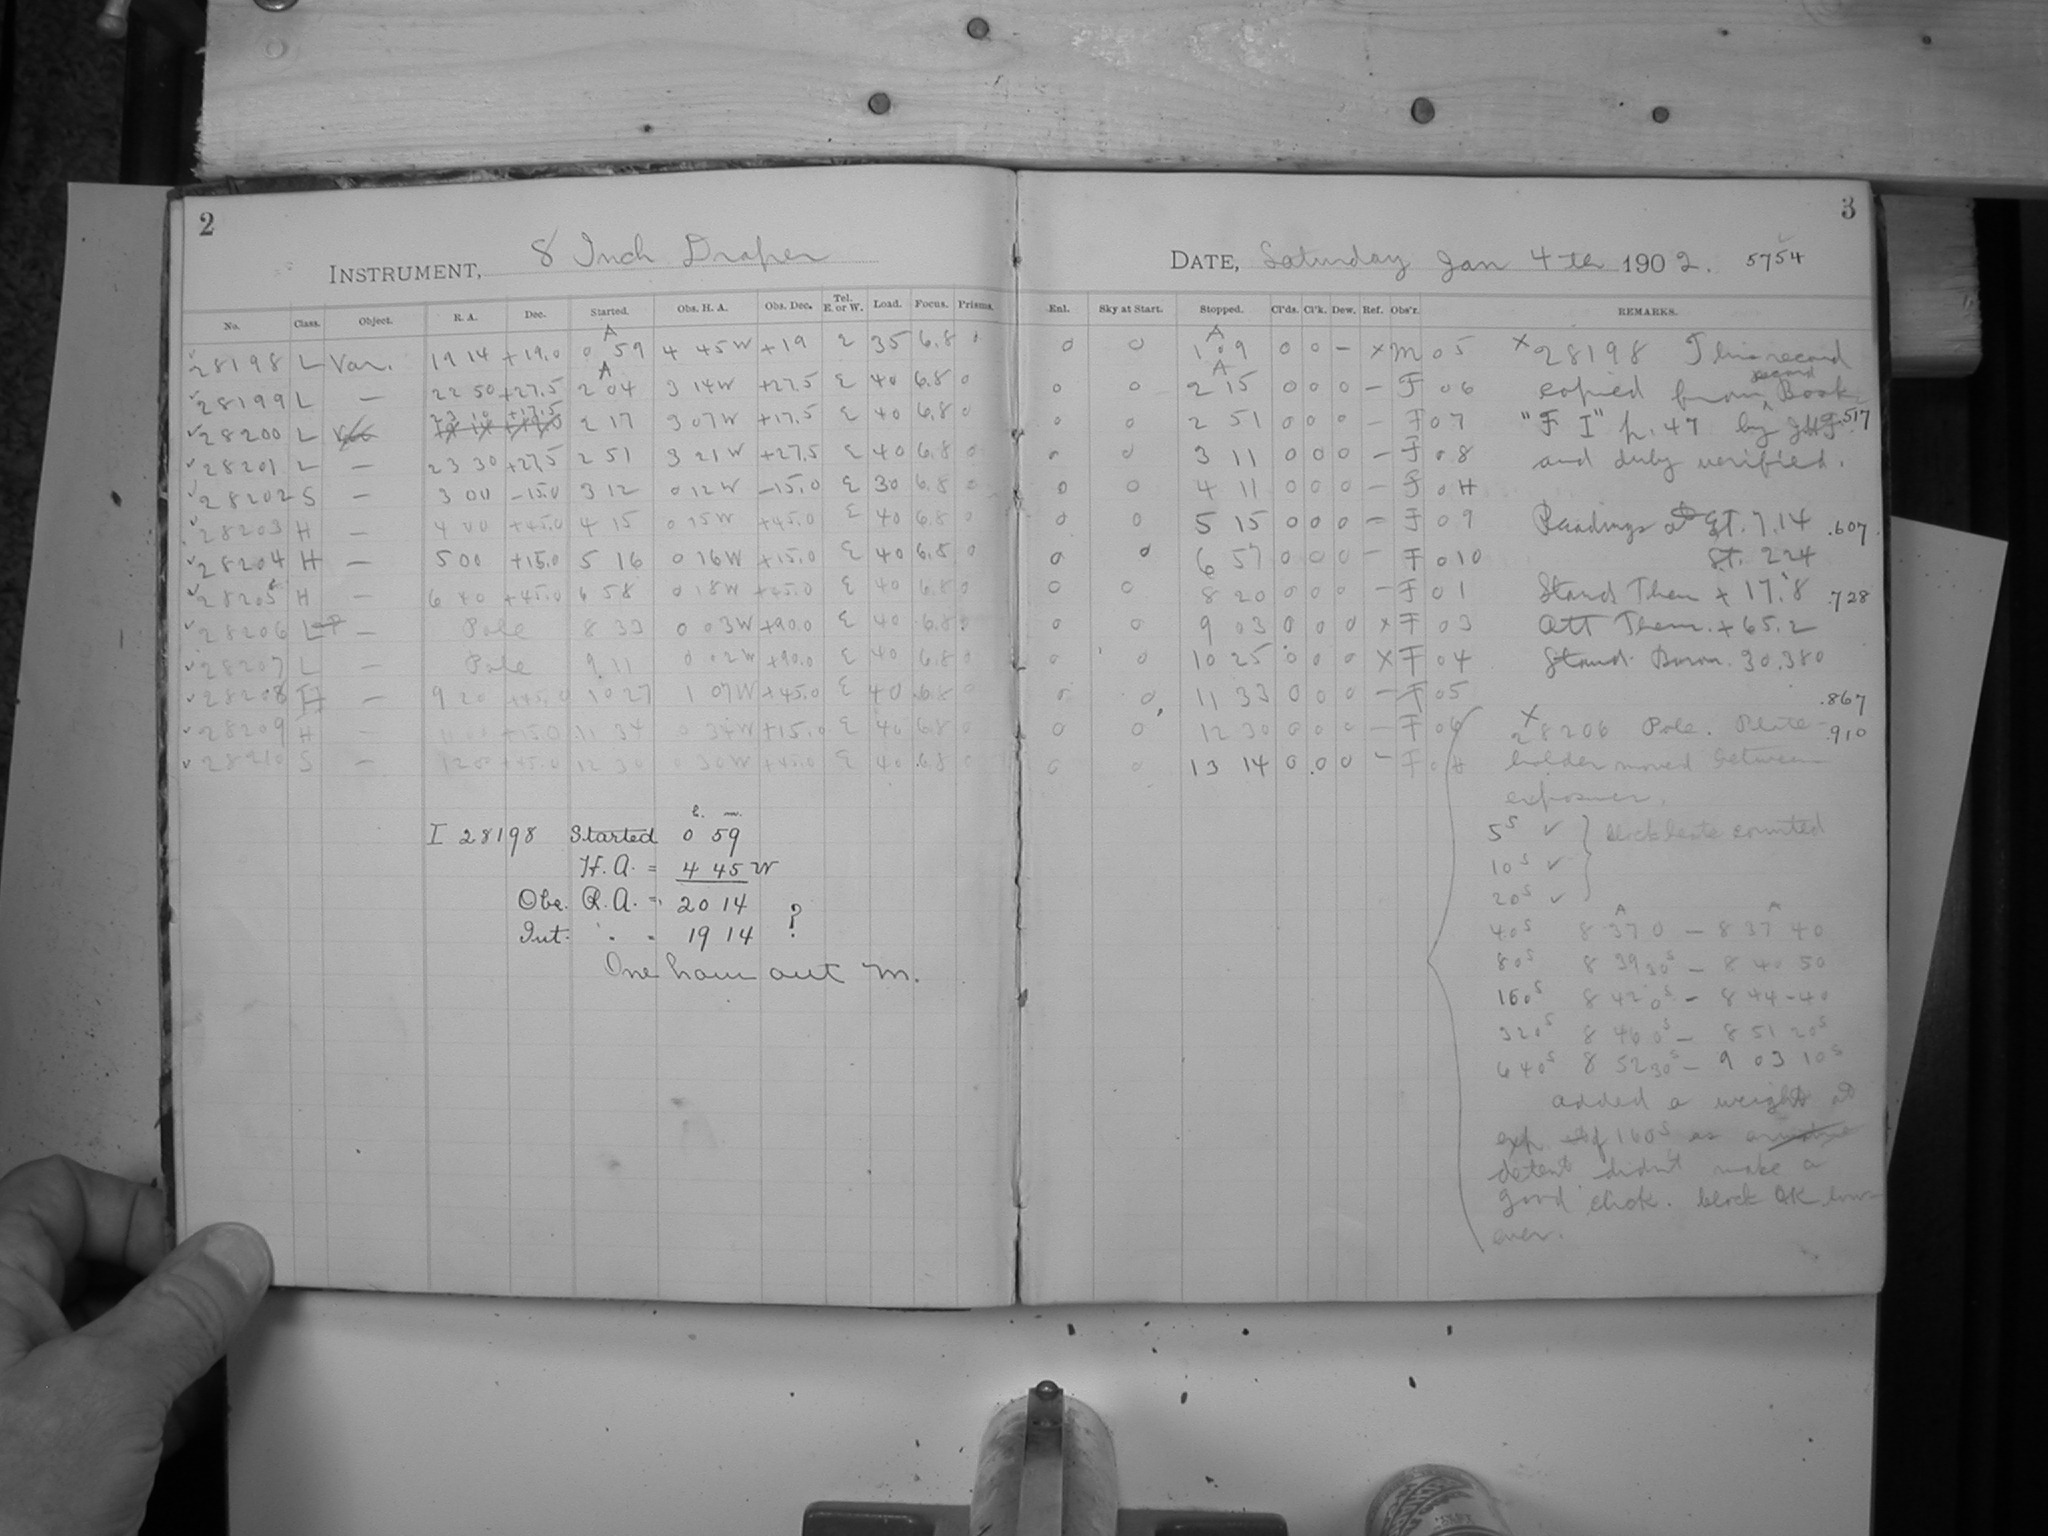 2
INSTRUMENT, 8 Inch Draper
No. Class. Object. R. A. Dec. Started. Obs. H. A. Obs. Dec. Tel. E. or W. Load. Focus. Prisms.
28198 L Var. 19 14 +19.0 A 0 59 4 45 W +19 E 35 6.8 0
28199 L — 22 50 +27.5 A 2 04 3 14 W +27.5 E 40 6.8 0
28200 L 23 10 +17.5 2 17 3 07 W +17.5 E 40 6.8 0
28201 L — 23 30 +27.5 2 51 3 21 W +27.5 E 40 6.8 0
28202 S — 3 00 -15.0 3 12 0 12 W -15.0 E 30 6.8 0
28203 H — 4 00 +45.0 4 15 0 15 W +45.0 E 40 6.8 0
28204 H — 5 00 +15.0 5 16 0 16 W +15.0 E 40 6.8 0
28205 H — 6 40 +45.0 6 58 0 18 W +45.0 E 40 6.8 0
28206 L — Pole 8 33 0 03 W +90.0 E 40 6.8 0
28207 L — Pole 9 11 0 02 W +90.0 E 40 6.8 0
28208 H — 9 20 +45.0 10 27 1 07 W +45.0 E 40 6.8 0
28209 H — 11 00 +15.0 11 34 0 34 W +15.0 E 40 6.8 0
28210 S — 12 0 +45.0 12 30 0 30 W +45.0 E 40 6.8 0
h. m.
I 28198 Started 0 59
H. A. = 4 45 W
Obs. R. A. = 20 14
Int. " " 19 14 ?
One hour out M.
3
DATE, Saturday Jan 4th 1902. 5754
Enl. Sky at Start. Stopped. Cl'ds. Cl'k. Dew. Ref. Obs'r. REMARKS.
0 0 A 1 09 0 0 — x M 05 x 28198 This record
0 0 A 2 15 0 0 0 — F 06 copied from record Book
0 0 2 51 0 0 0 — F 07 "F I" p. 47 by .517
0 0 3 11 0 0 0 — F 08 and duly verified.
0 0 4 11 0 0 0 — F 0H
0 0 5 15 0 0 0 — F 09 Readings at ST. 7.14 .607
0 0 6 57 0 0 0 — F 010 St. 224
0 0 8 20 0 0 0 — F 01 Stand Them + 17.8 .728
0 0 9 03 0 0 0 x F 03 Att Therm. + 65.2
0 0 10 25 0 0 0 x F 04 Stand. Barom. 30.380
0 0 11 33 0 0 0 — F 05 .867
0 0 12 30 0 0 0 — F 06 x 28206 Pole. Plate .910
0 0 13 14 0 0 0 — F holder moved between
exposures.
5s ✓ } clock beats counted
10s ✓
20s ✓
40s 8 37 0 — 8 37 40
80s 8 39 30s — 8 40 50
160s 8 42 0s — 8 44-40
320s 8 46 0s — 8 51 20s
640s 8 52 30s — 9 03 10s
added a weight at
exp of 160s as
detent didn't make a
good click. clock OK how-
ever.